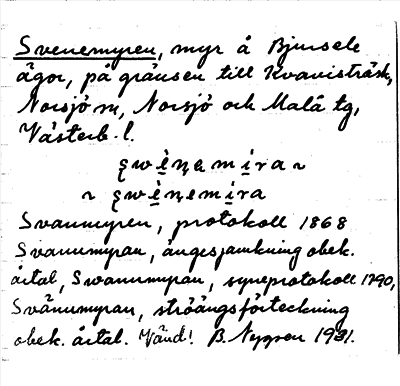 Svenemyren, myr å Bjursele
ägor, på gränsen till Kvavisträsk,
Norsjö sn, Norsjö och Malå tg,
Västerb. l.
~
~
Svanmyren, protokoll 1868
Svanumyran, ängesjämkning obek.
årtal, Swanumyran, syneprotokoll 1790,
Svånumyran, ströängsförteckning
obek. årtal. Vänd! B. Nygren 1931.